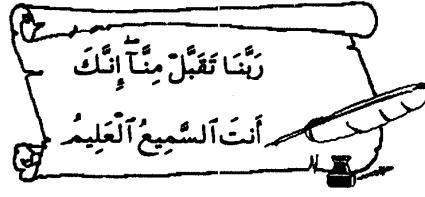 رَبَّنَا تَقَبَّلْ مِنَّآ ۖ إِنَّكَ
أَنتَ ٱلسَّمِيعُ ٱلْعَلِيمُ